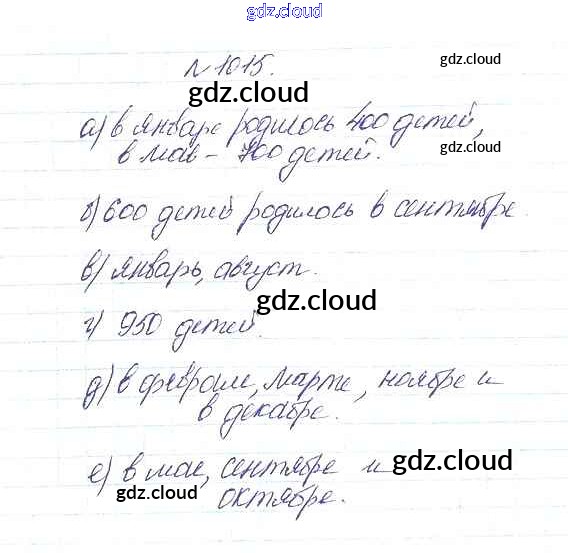 gdz.cloud
gdz.cloud
№ 1015.
gdz.cloud
а) в январе родилось 400 детей,
в мае - 700 детей.
gdz.cloud
б) 600 детей родилось в сентябре.
gdz.cloud
в) январь, август.
gdz.cloud
г) 950 детей.
д) в феврале, марте, ноябре и
в декабре.
gdz.cloud
е) в мае, сентябре и
октябре.
gdz.cloud